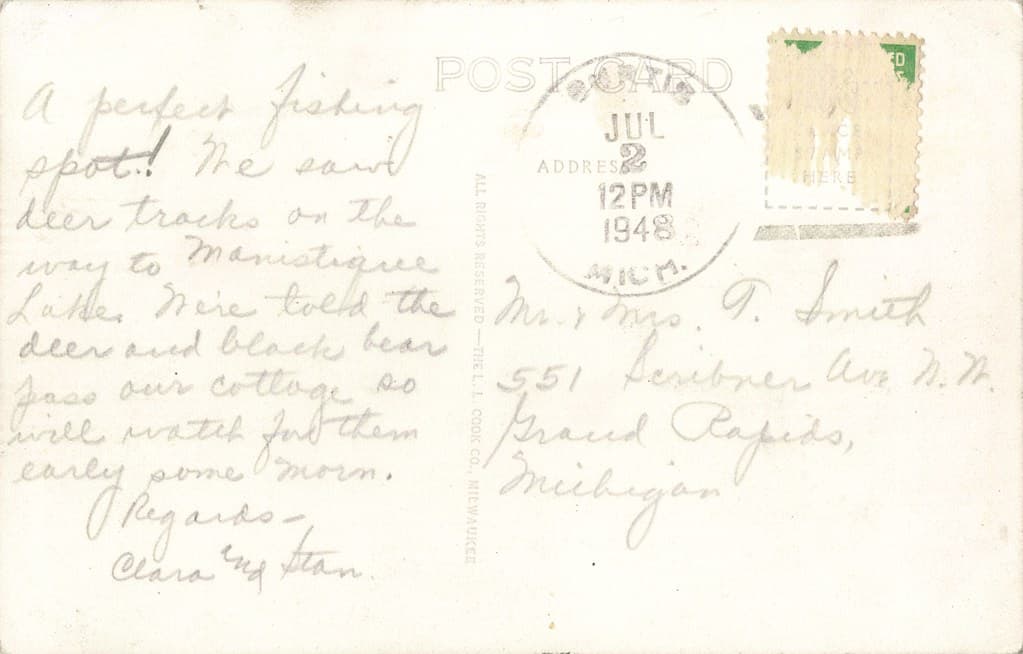 POST CARD
CURTIS
JUL
2
12PM
1948
MICH.
ADDRESS
ED
PLACE
STAMP
HERE
A perfect fishing
spot! We saw
deer tracks on the
way to Manistiquee
Lake. We're told the
deer and black bear
pass our cottage so
will watch for them
early some morn.
Regards—
Clara and Stan.
ALL RIGHTS RESERVED—THE L. L. COOK CO., MILWAUKEE
Mr. & Mrs. T. Smith
551 Scribner Ave N.W.
Grand Rapids,
Michigan